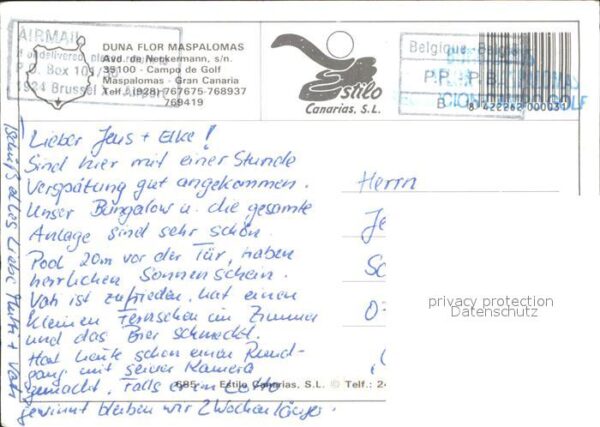 AIRMAIL
If undelivered, please return to
P.O. Box 10
1934 Brussel X - Airport
DUNA FLOR MASPALOMAS
Avd. de Neckermann, s/n.
35100 - Campo de Golf
Maspalomas - Gran Canaria
Telf. (928) 767675-768937
769419
Estilo
Canarias, S.L.
Belgique - België
P.P. P.B.
B
8 422262 000031
Lieber Jens + Elke!
Sind hier mit einer Stunde
Verspätung gut angekommen.
Unser Bungalow u. die gesamte
Anlage sind sehr schön.
Pool 20m vor der Tür, haben
herrlichen Sonnenschein.
Vati ist zufrieden, hat einen
kleinen Fernseher im Zimmer
und das Bier schmeckt.
Hat heute schon einen Rund-
gang mit seiner Kamera
gemacht. Falls er im Lotto
gewinnt bleiben wir 2 Wochen länger.
Tschüß alles Liebe Mutti + Vati
Herrn
Je
Sc
O-
privacy protection
Datenschutz
685 Estilo Canarias, S.L. © Telf.: 2